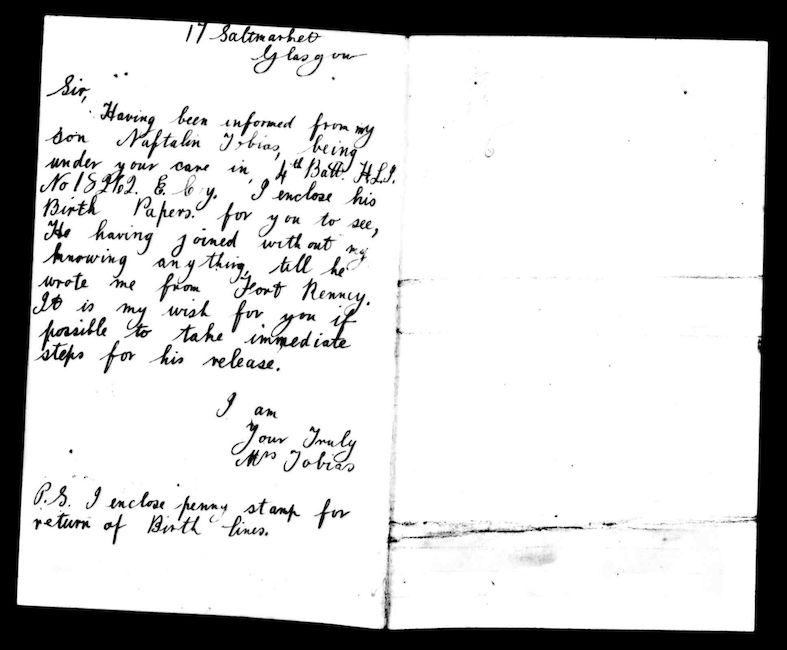 17 Saltmarket
Glasgow
Sir,
Having been informed from my
son Naftalin Tobias, being
under your care in, 4th Batt. H.L.I.
No 18262. E. Coy. I enclose his
Birth Papers. for you to see,
He having joined without my
knowing anything, till he
wrote me from Fort Renney.
It is my wish for you if
possible to take immediate
steps for his release.
I am
Your Truly
Mrs Tobias
P.S. I enclose penny stamp for
return of Birth lines.